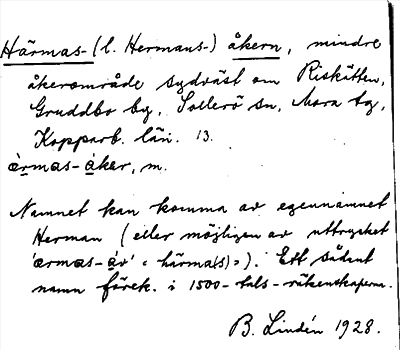 Härmas- (l. Hermans-) åkern, mindre
åkerområde sydväst om Riskätten,
Gruddbo by, Sollerö sn, Mora tg,
Kopparb. län. 13.
ærmas-åker, m.
Namnet kan komma av egennamnet
Herman (eller möjligen av uttrycket
'ærmas-av' = härma(s) =). Ett sådant
namn förek. i 1500-tals-räkenskaperna.
B. Lindén 1928.